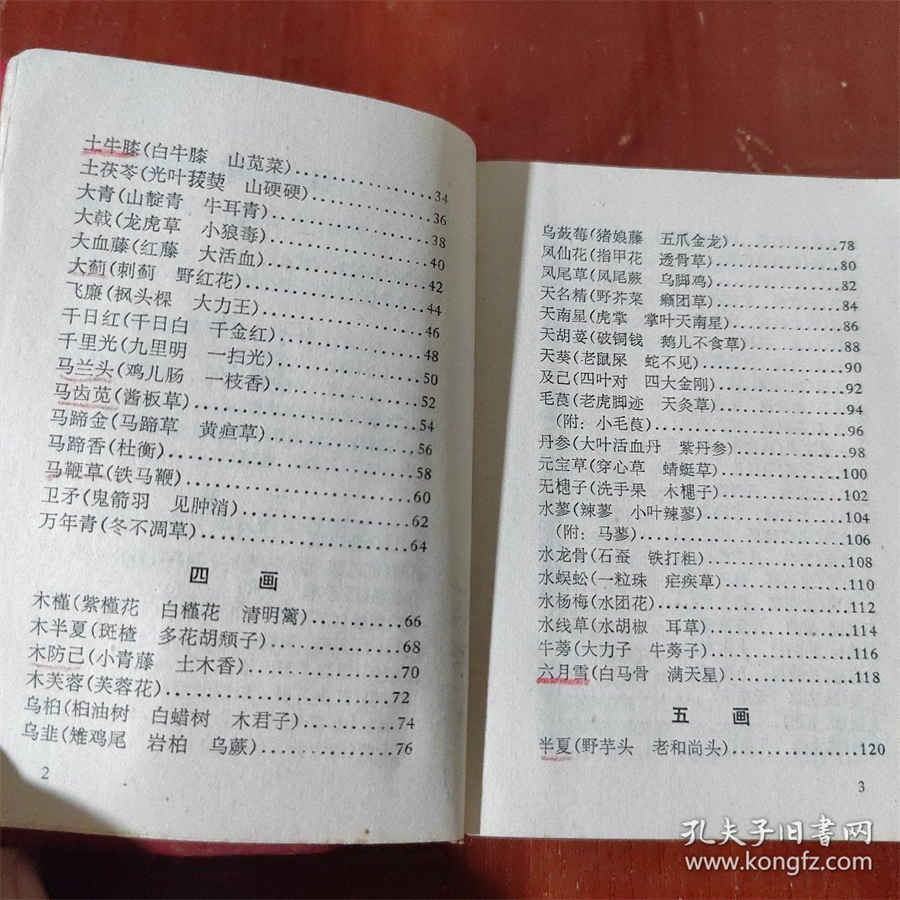 土牛膝(白牛膝 山苋菜)……34
土茯苓(光叶菝葜 山硬硬)……36
大青(山靛青 牛耳青)……38
大戟(龙虎草 小狼毒)……40
大血藤(红藤 大活血)……42
大蓟(刺蓟 野红花)……44
飞廉(枫头棵 大力王)……46
千日红(千日白 千金红)……48
千里光(九里明 一扫光)……50
马兰头(鸡儿肠 一枝香)……52
马齿苋(酱板草)……54
马蹄金(马蹄草 黄疸草)……56
马蹄香(杜衡)……58
马鞭草(铁马鞭)……60
卫矛(鬼箭羽 见肿消)……62
万年青(冬不凋草)……64
四 画
木槿(紫槿花 白槿花 清明篱)……66
木半夏(斑楂 多花胡颓子)……68
木防己(小青藤 土木香)……70
木芙蓉(芙蓉花)……72
乌桕(桕油树 白蜡树 木君子)……74
乌韭(雉鸡尾 岩柏 乌蕨)……76
2
乌蔹莓(猪娘藤 五爪金龙)……78
凤仙花(指甲花 透骨草)……80
凤尾草(凤尾蕨 乌脚鸡)……82
天名精(野芥菜 癞团草)……84
天南星(虎掌 掌叶天南星)……86
天胡荽(破铜钱 鹅儿不食草)……88
天葵(老鼠屎 蛇不见)……90
及己(四叶对 四大金刚)……92
毛茛(老虎脚迹 天灸草)……94
(附:小毛茛)……96
丹参(大叶活血丹 紫丹参)……98
元宝草(穿心草 蜻蜓草)……100
无槵子(洗手果 木槵子)……102
水蓼(辣蓼 小叶辣蓼)……104
(附:马蓼)……106
水龙骨(石蚕 铁打粗)……108
水蜈蚣(一粒珠 疟疾草)……110
水杨梅(水团花)……112
水线草(水胡椒 耳草)……114
牛蒡(大力子 牛蒡子)……116
六月雪(白马骨 满天星)……118
五 画
半夏(野芋头 老和尚头)……120
3
孔夫子旧書网
www.kongfz.com